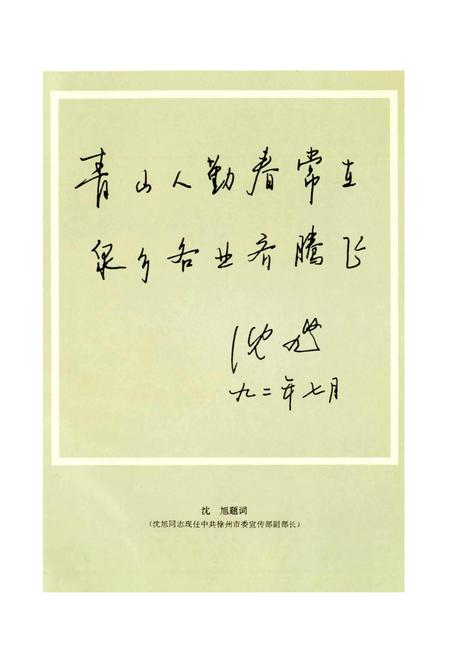 青山人勤春常在
泉乡各业齐腾飞
沈旭
九二年七月
沈 旭题词
(沈旭同志现任中共徐州市委宣传部副部长)